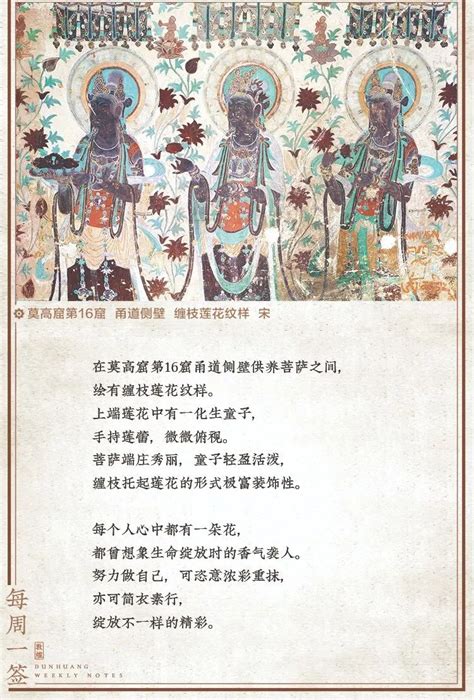 莫高窟第16窟 甬道侧壁 缠枝莲花纹样 宋
在莫高窟第16窟甬道侧壁供养菩萨之间，
绘有缠枝莲花纹样。
上端莲花中有一化生童子，
手持莲蕾，微微俯视。
菩萨端庄秀丽，童子轻盈活泼，
缠枝托起莲花的形式极富装饰性。
每个人心中都有一朵花，
都曾想象生命绽放时的香气袭人。
努力做自己，可恣意浓彩重抹，
亦可简衣素行，
绽放不一样的精彩。
每周一签
敦煌
DUNHUANG
WEEKLY NOTES